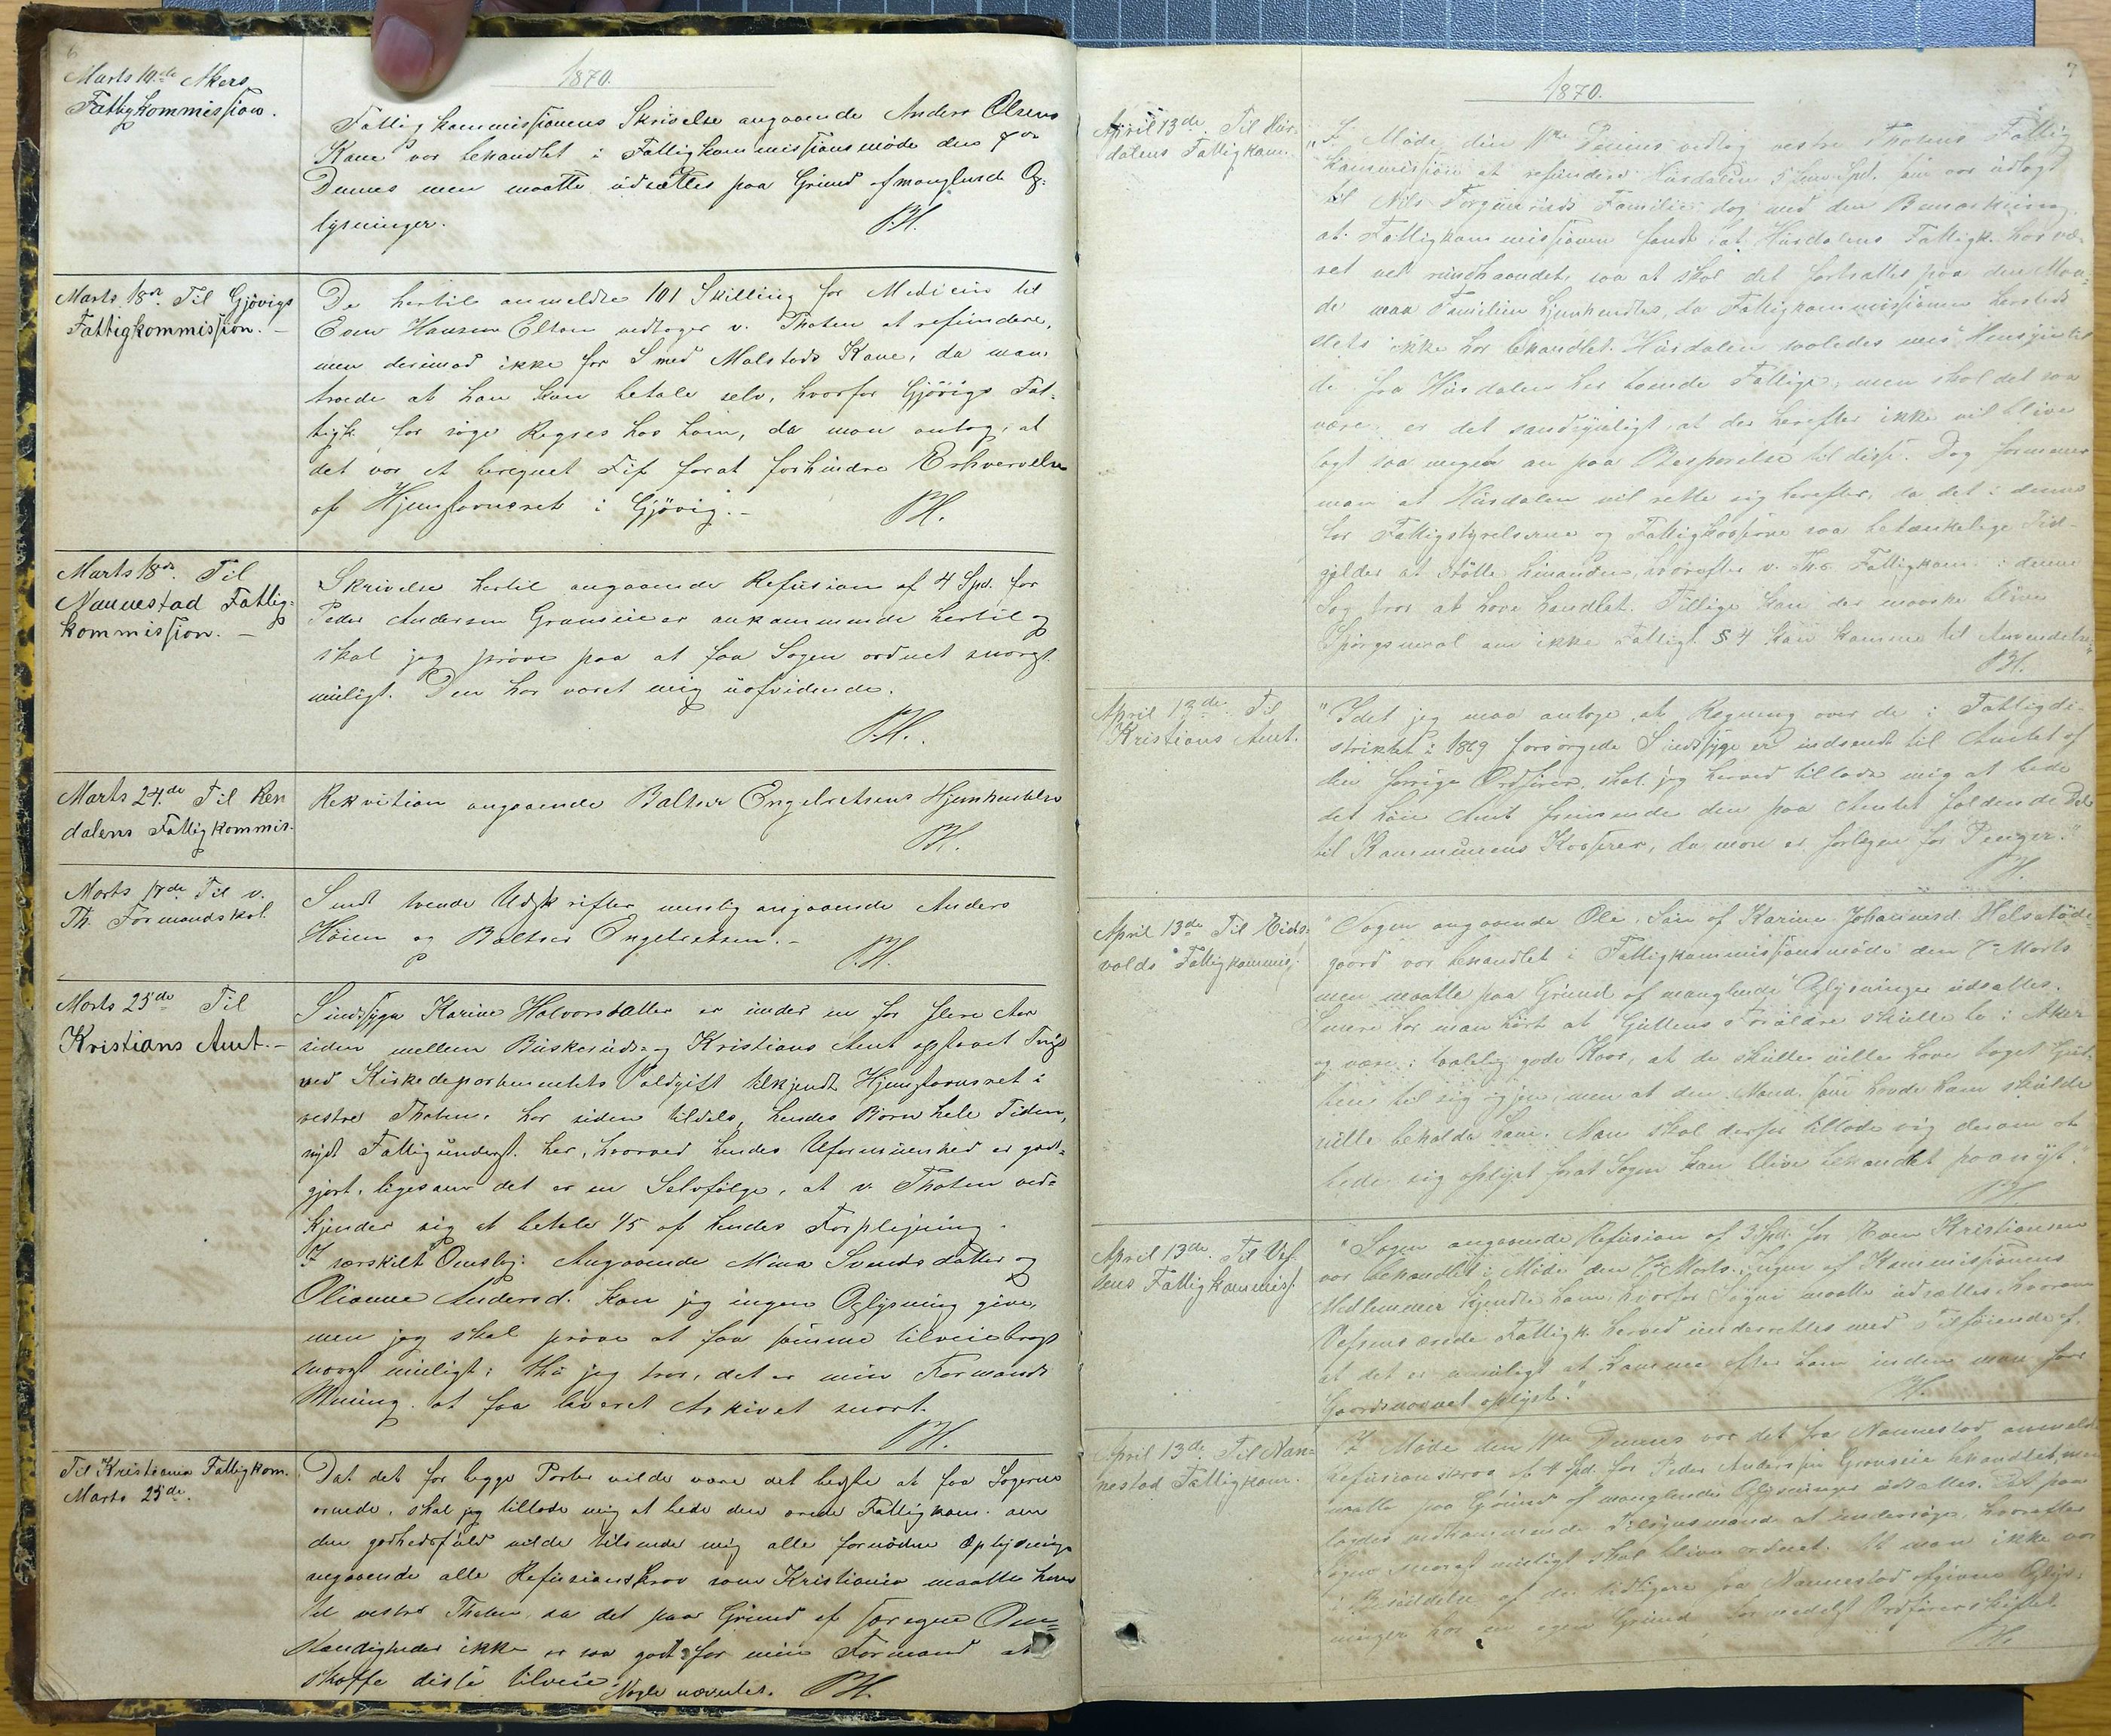 6
1870.
Marts 14de Akers
Fattigkommission.
Fattigkommissionens Skrivelse angaaende Anders Olsens
Kone var behandlet i Fattigkommissionsmøde den 7de
Dennes men maatte udsættes paa Grund af manglende Op-
lysninger. PH.
Marts 18de Til Gjøvigs
Fattigkommission. —
De hertil anmeldte 101 Skilling for Medicin til
Even Hansen Elton vedtoges v. Thoten at refundere,
men derimod ikke for Smed Malstads Kone, da man
troede at han kan betale selv, hvorfor Gjøvigs Fat-
tigk. før søge Regres hos ham, da man antog, at
det var et beregnet Fif forat forhindre Erhvervelse
af Hjemstavnsret i Gjøvig. — PH.
Marts 18de. Til
Nannestad Fattig-
kommission. —
Skrivelse hertil angaaende Refusion af 4 Spd. for
Peder Andersen Granseie er ankommende hertil og
skal jeg prøve paa at faa Sagen ordnet snarest
muligt. Den har været mig uafvidende.
PH.
Marts 24de Til Ren
dalens Fattigkommis.
Rekvition angaaende Baltser Engebretsens Hjemhentelse
PH.
Marts 17de Til v.
Th. Formandskab.
Sendt tvende Udskrifter nemlig angaaende Anders
Høien og Baltser Engebretsen. — PH.
Marts 25de Til
Kristians Amt. —
Sindssyge Karine Halvorsdatter er under en for flere Aar
siden mellem Buskeruds og Kristians Amt opstaaet Tvist
ved Kirkedepartementets Voldgift tilkjendt Hjemstavnsret i
vestre Thoten, har siden tildels, hendes Børn hele Tiden,
nydt Fattigunderst. her, hvorved hendes Uformuenhed er god-
gjort, ligesom det er en Selvfølge, at v. Thoten ved-
kjender sig at betale 1/5 af hendes Forplejning.
I særskilt Omslag: Angaaende Mina Svendsdatter og
Olianne Andersd. kan jeg ingen Oplysning give,
men jeg skal prøve at faa samme tilveiebragt
snarest muligt; thi jeg tror, det er min Formands
Mening at faa leveret Arkivet snart.
PH.
Til Kristiania Fattigkom.
Marts 25de.
Dat det for begge Parter vilde være det bedste at faa Sagerne
ornede, skal jeg tillade mig at bede den ærede Fattigkom. om
den godhedsfuld vilde tilsende mig alle fornødne Oplysninge
angaaende alle Refusionskrav som Kristiania maatte have
til vestre Thoten, da det paa Grund af foregne Om-
stændigheder ikke er saa godt for min Formand at
skaffe disse tilveie. Nogle nævntes. PH.
7
1870.
April 13de. Til Hur-
dalens Fattigkom.
"I Møde den 11te Dennes vedtog vestre Thotens Fattig
kommission at refundere Hurdalen 5 Spd. som var udlagt
til Nils Torgunruds Familie, dog med den Bemærkning
at Fattigkommissionen fandt, at Hurdalens Fattigk. har væ-
ret vel rundhaandet, saa at skal det fortsættes paa den Maa-
de maa Familien hjemhentes, da Fattigkommissionen hersteds
stets ikke har behandlet Hurdalen saaledes med Hensyn til
de fra Hurdalen her boende Fattige; men skal det saa
være, er det sandsynligt, at der herefter ikke vil blive
lagt saa megen an paa Besparelse til disse. Dog formener
man at Hurdalen vil rette sig herefter, da det i denne
for Fattigstyrelserne og Fattigkasserne saa betænkelige Tid
gjelder at støtte hinanden, hvorefter v. Th.s Fattigkom. i denne
Sag tror at have handlet. Tillige kan der maaske blive
Spørgsmaal om ikke Fattigl. § 4 kan komme til Anvendelse."
PH.
April 13de. Til
Kristians Amt.
"Idet jeg maa antage, at Regning over de i Fattigdi-
striktet i 1869 forsørgede Sindssyge er indsendt til Amtet af
den forrige Ordfører, skal jeg herved tillade mig at bede
det høie Amt fremsende den paa Amtet faldende Del
til Kommunens Kasserer, da man er forlegen for Penger."
PH.
April 13de Til Eids-
volds Fattigkommis.
"Sagen angaaende Ole, Søn af Karine Johannesd. Helsetøde-
gaard var behandlet i Fattigkommissionsmøde den 7de Marts
men maatte paa Grund af manglende Oplysninger udsættes.
Senere har man hørt at Guttens Forældre skulle bo i Aker
og være i taalelig gode Kaar, at de skulle ville have taget Gut-
ten til sig igjen, men at den Mand, som havde ham skulde
ville beholde ham. Man skal derfor tillade sig derom at
bede sig oplyst forat Sagen kan blive behandlet paanyt."
PH.
April 13de. Til Vef
sens Fattigkommis.
"Sagen angaaende Refusion af 3 Spd. for Even Kristiansen
var behandlet i Møde den 7de Marts. Ingen af Kommissionens
Medlemmer kjendte ham, hvorfor Sagen maatte udsættes, hvorom
Vefsens ærede Fattigk. herved underrettes med Tilføiende af,
at det er umuligt at komme efter ham inden man faar
Gaardsnavnet oplyst." PH.
April 13de. Til Nan-
nestad Fattigkom.
I Møde den 11te Dennes var det fra Nannestad anmeldte
Refusionskrav af 4 Spd. for Peder Anderssøn Granseie behandlet, men
maatte paa Grund af manglende Oplysninger udsættes. Det paa
lagdes vedkommende Tilsynsmand at undersøge, hvorefter
Sagen snarest muligt skal blive ordnet. At man ikke var
i Besiddelse af de tidligere fra Nannestad afgivne Oplys-
ninger har en egen Grund, formedelst Ordførerskiftet.
PH.